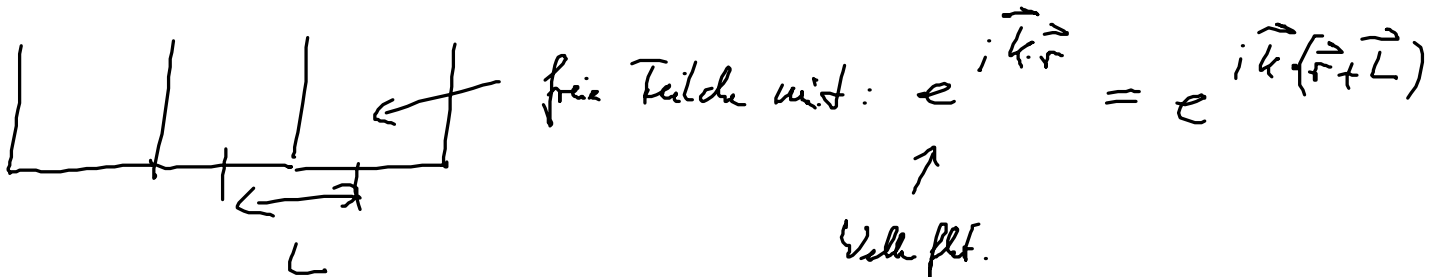 freie Teilche mit: e^{i\vec{k}\cdot\vec{r}} = e^{i\vec{k}\cdot(\vec{r}+\vec{L})}
L
Welle fkt.